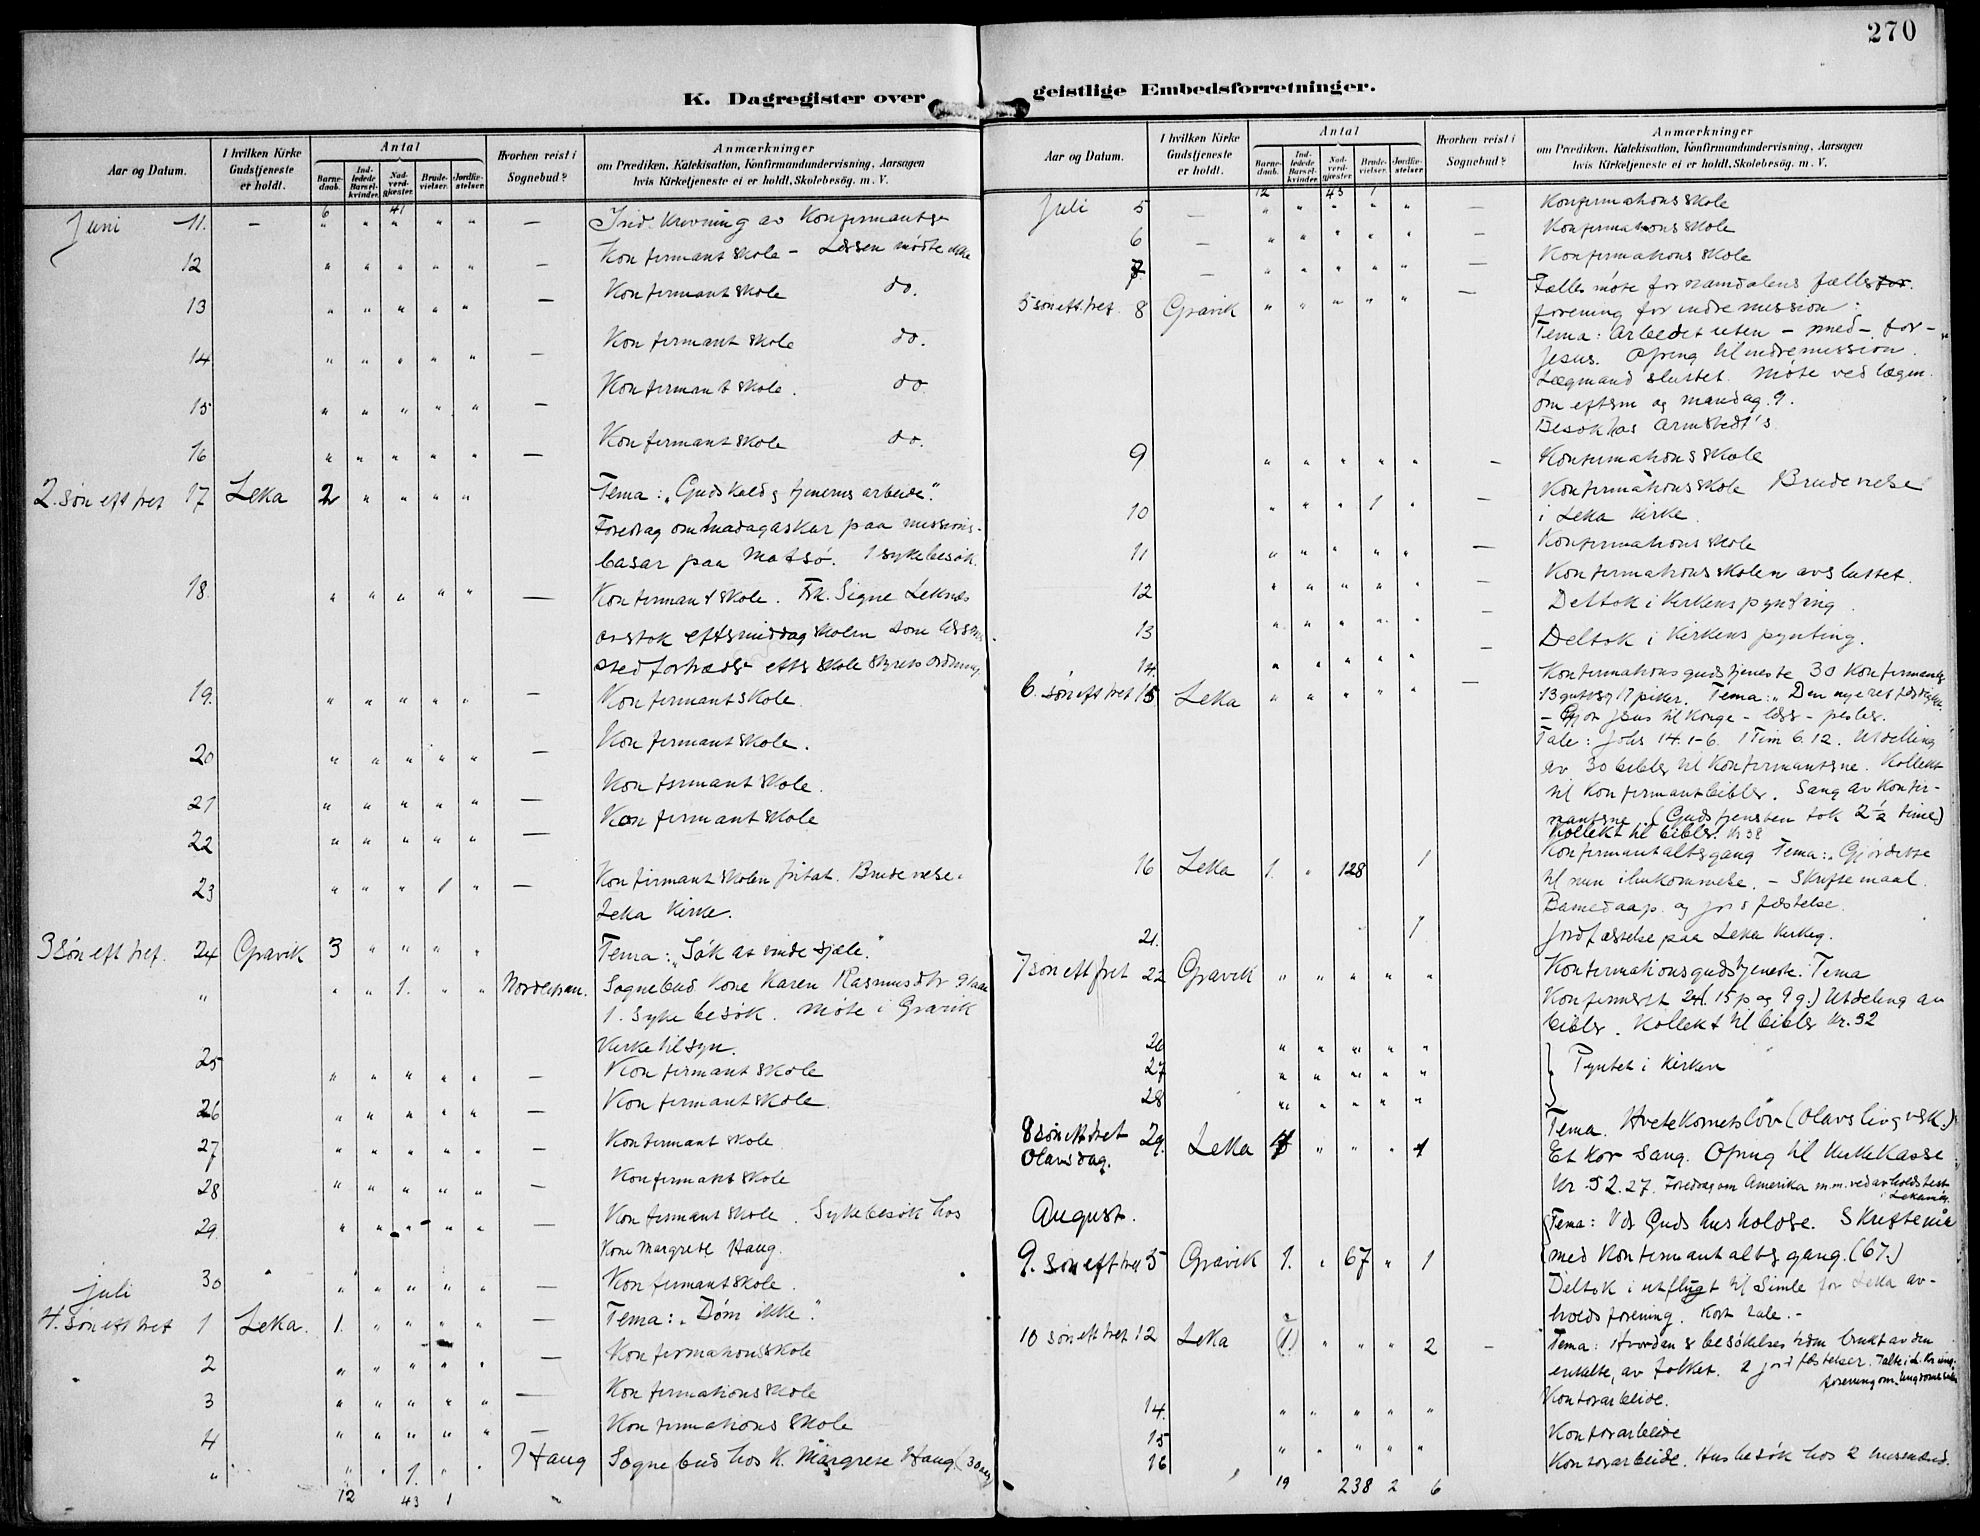 270
K. Dagregister over geistlige Embedsforretninger.
Aar og Datum. I hvilken Kirke Gudstjeneste er holdt. Antal Hvorhen reist i Sognebud? Anmærkninger
Barnedaab. Indledede Barselkvinder. Nadverdgjæster. Brudevielser. Jordfæstelser. om Prædiken, Katekisation, Konfirmandundervisning, Aarsagen hvis Kirketjeneste ei er holdt, Skolebesøg. m. V.
6 41
Juni 11. — " " " " " — Ind.skrivning av Konfirmanter
12 " " " " " — Konfirmantskole – Læssen mødte ikke
13 " " " " " — Konfirmantskole do.
14 " " " " " — Konfirmantskole do.
15 " " " " " — Konfirmantskole. do
16 " " " " " — Konfirmantskole do.
2. søn eft tref 17 Leka 2 " " " " Tema: „Guds kald og tjeneres arbeide".
Foredrag om Madagaskar paa missions-
basar paa Madsø. 1 sykebesøk.
18. " " " " " — Konfirmantskole. Frk. Signe Leknes
overtok eftermiddagskolen som
stedfortræder efter skolestyrets ordning.
19. " " " " " — Konfirmantskole.
20 " " " " " — Konfirmantskole.
21 " " " " " — Konfirmantskole.
22 " " " " " — Konfirmantskole
23 " " " 1 " — Konfirmantskolen fritat. Brudevielse i
Leka Kirke.
3 søn eft tref. 24 Gravik 3 " " " " Tema: „Søk at vinde sjæle."
" " " 1. " " Sognebud Kone Karen Rasmusdtr 91 aar
1. Sykebesøk. Møte i Gravik
Kirketilsyn.
25 " " " " " — Konfirmantskole
26 " " " " " — Konfirmantskole.
27 " " " " " — Konfirmant skole
28 " " " " " — Konfirmantskole
29 " " " " " — Konfirmantskole. Sykebesøk hos
Kone Margrete Haug.
30 " " " " " — Konfirmantskole.
Juli
4. søn eft tref 1 Leka. 1. " " " " Tema: „Døm ikke".
2 " " " " " — Konfirmationsskole
3 " " " " " — Konfirmationsskole
4 " " " " " — Konfirmationsskole
" " " 1. " " Haug Sognebud hos K. Margrete Haug (30 aar)
12 43 1
Aar og Datum. I hvilken Kirke Gudstjeneste er holdt. Antal Hvorhen reist i Sognebud? Anmærkninger
Barnedaab. Indledede Barselkvinder. Nadverdgjæster. Brudevielser. Jordfæstelser. om Prædiken, Katekisation, Konfirmandundervisning, Aarsagen hvis Kirketjeneste ei er holdt, Skolebesøg. m. V.
12 43 1
Juli 5 — " " " " " — Konfirmationsskole
6 — " " " " " — Konfirmationsskole
7 — " " " " " — Konfirmationsskole
5 søn eft. tref. 8 Gravik " " " " " — Fælles møte for Namdalens fællesfor.
forening for indre mission.
Tema: Arbeidet uten – med – for –
Jesus. Ofring til indremission.
Lægmand sluttet. Møte ved lægm.
om efterm og mandag 9.
Besøk hos Armstedt's
9 " " " " " — Konfirmationsskole
10 " " " 1 " — Konfirmationsskole Brudevielse
i Leka Kirke.
11 " " " " " — Konfirmationsskole
12 " " " " " — Konfirmationsskolen avsluttet.
13 " " " " " — Deltok i Kirkens pynting.
14. " " " " " — Deltok i Kirkens pynting.
6. søn eft tref 15 Leka " " " " " — Konfirmationsgudstjeneste 30 Konfirmanter
13 gutter og 17 piker. Tema: „Den nye retfærdighet
– Gjør Jesus til Konge –
Tale: Johs 14.1-6. 1 Tim 6.12. Utdeling
av 30 bibler til Konfirmantene. Kollekt
til Konfirmantbibler. Sang av Konfir-
mantene. (Gudstjensten tok 2 ½ time)
Kollekt til bibler. Kr 38
16 Leka 1. " 128 1 Konfirmantaltergang Tema: „Gjør dette
til min ihukommelse. – Skriftemaal.
Barnedaap. og jordfæstelse.
21. 1 Jordfæstelse paa Leka Kirkeg.
7 søn eft tref 22 Gravik " " " " " Konfirmationsgudstjeneste. Tema
Konfirmert 24. 15 p og 9 g.) Utdeling av
bibler. Kollekt til bibler Kr. 32
26 " " " " "
27 " " " " " Pyntet i Kirken
28 " " " " "
8 søn eft tref 29. Leka 1 " " " 1 Tema. Hvetekornets lov (Olavs liv og virk.)
Olavsdag. Et kor sang. Ofring til Kirkekasse
Kr 52.27. Foredrag om Amerika m.m. ved avholdsfest
August.
9. søn eft tref 5 Gravik 1. " 67 " 1 Tema: Ved Guds husholdere. Skriftemål
med Konfirmantaltergang. (67.)
Deltok i utflugt til Simle for Leka av-
holdsforening. Kort tale. –
10 søn eft tref 12 Leka (1) " " " 2 – Tema: Hvordan er besøkelses tiden brukt av den
enkelte, av folket. 2 jordfæstelser. Tale i L. Kr ung.
forening om
14. " " " " " Kontorarbeide.
15 " " " " " Kontorarbeide
16 Kontorarbeide. Husbesøk hos 2
19 238 2 6